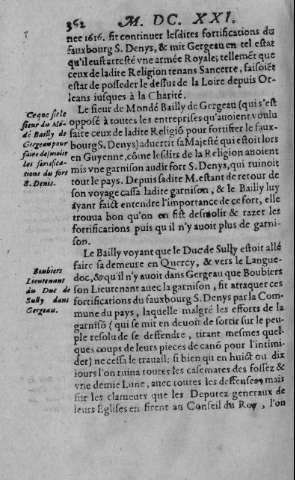 362 M. DC. XXI.
nee 1616. fit continuer lesdites fortifications du
fauxbourg S. Denys, & mit Gergeau en tel estat
qu'il eust arresté vne armée Royale; tellemēt que
ceux de ladite Religion tenans Sancerre, faisoiēt
estat de posseder le dessus de la Loire depuis Or-
leans iusques à la Charité.
Le sieur de Mondé Bailly de Gergeau (qui s'est
opposé à toutes les entreprises qu'auoient voulu
faire ceux de ladite Religiō pour fortifier le faux-
bourg S. Denys) aduertit sa Majesté qui estoit lors
en Guyenne, cōme lesdits de la Religion auoient
mis vne garnison audit fort S. Denys, qui ruinoit
tout le pays. Depuis sadite M. estant de retour de
son voyage cassa ladite garnison, & le Bailly luy
ayant faict entendre l'importance de ce fort, elle
trouua bon qu'on en fist desmolir & razer les
fortifications puis qu'il n'y auoit plus de garni-
son.
Ce que fit le
sieur du Mō-
dé Bailly de
Gergeau pour
faire desmolir
les fortifica-
tions du fort
S. Denis.
Le Bailly voyant que le Duc de Sully estoit allé
faire sa demeure en Quercy, & vers le Langue-
doc, & qu'il n'y auoit dans Gergeau que Boubiers
son Lieutenant auec la garnison, fit attaquer ces
fortifications du fauxbourg S. Denys par la Com-
mune du pays, laquelle malgré les efforts de la
garnisō ( qui se mit en deuoir de sortir sur le peu-
ple resolu de se deffendre, tirant mesmes quel-
ques coups de leurs pieces de canō pour l'intimi-
der) ne cessa le trauail; si bien qu'en huict ou dix
iours l'on ruina toutes les casemates des fossez &
vne demie Lune, auec toutes les deffenses: mais
sur les clameurs que les Deputez generaux de
leurs Eglises en firent au Conseil du Roy, l'on
Boubiers
Lieutenant
du Duc de
Sully dans
Gergeau.